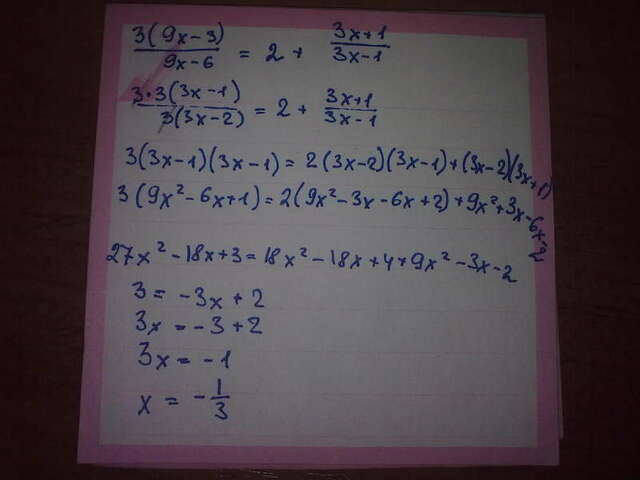 3(9x-3)/9x-6 = 2 + 3x+1/3x-1
3·3(3x-1)/3(3x-2) = 2 + 3x+1/3x-1
3(3x-1)(3x-1) = 2(3x-2)(3x-1)+(3x-2)(3x+1)
3(9x²-6x+1) = 2(9x²-3x-6x+2)+9x²+3x-6x-2
27x²-18x+3 = 18x²-18x+4+9x²-3x-2
3 = -3x+2
3x = -3+2
3x = -1
x = -1/3